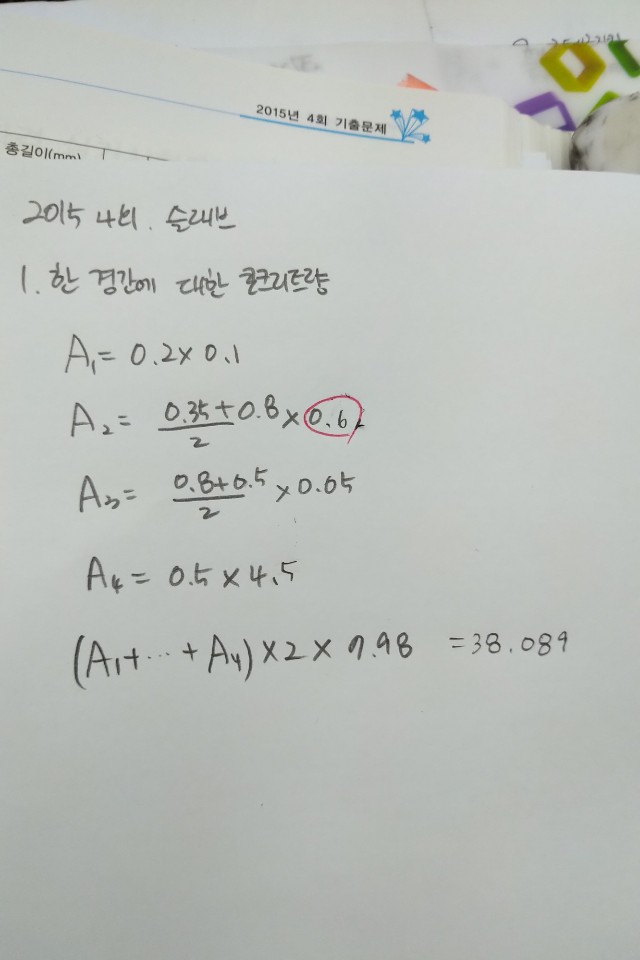 2015년 4회 기출문제
총길이(mm)
2015 4회. 슬래브
1. 한 경간에 대한 콘크리트량
A₁= 0.2×0.1
A₂= (0.35+0.8)/2 × 0.6
A₃= (0.8+0.5)/2 × 0.05
A₄= 0.5×4.5
(A₁+…+A₄)×2×7.98 =38.089